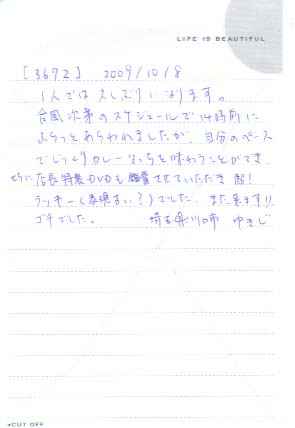 LIFE IS BEAUTIFUL
[3672] 2009/10/8
1人では久しぶりになります。
台風次第のスケジュールで14時前に
ふらっとあらわれましたが、自分のペース
でじっくりカレーなっちを味わうことができ、
さらに店長特製DVDも鑑賞させていただき 超!
ラッキー(表現古い?)でした。また来ます!!
ゴチでした。 埼玉県川口市 ゆきじ
◂CUT OFF